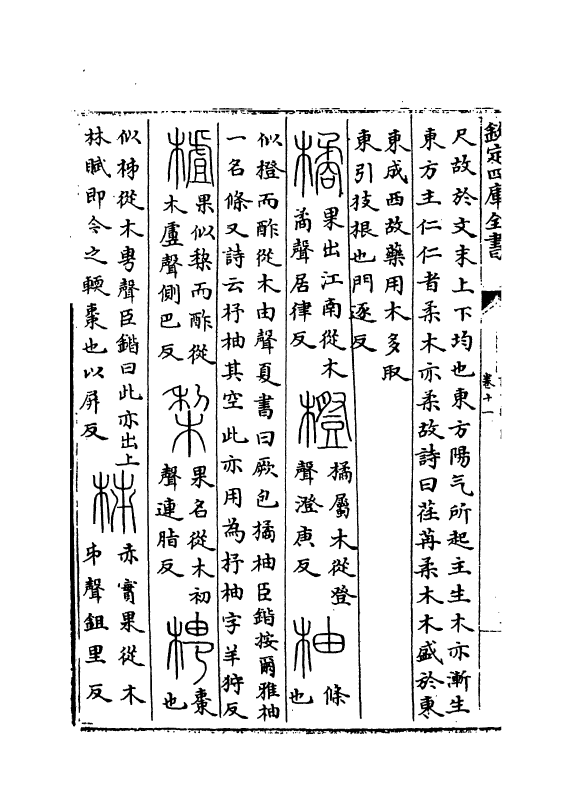 欽定四庫全書
卷十一
尺故於文末上下均也東方陽气所起主生木亦漸生
東方主仁仁者柔木亦柔故詩曰荏苒柔木木盛於東
東成西故藥用木多取
東引枝根也門逐反
橘果出江南從木
矞聲居律反
橙橘屬木從登
聲澄庚反
柚條
也
似橙而酢從木由聲夏書曰厥包橘柚臣鍇按爾雅柚
一名條又詩云杼柚其空此亦用為杼柚字羊狩反
樝果似棃而酢從
木虘聲側巴反
棃果名從木初
聲連脂反
梬棗
也
似柹從木甹聲臣鍇曰此亦出上
林賦即今之㮕棗也以屏反
柹赤實果從木
𠂔聲鉏里反